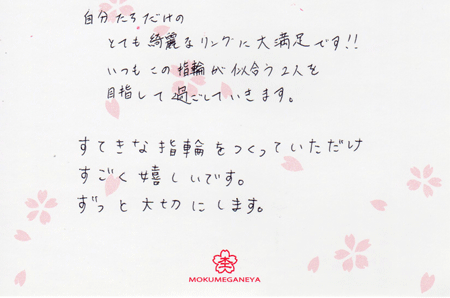 自分たちだけの
とても綺麗なリングに大満足です!!
いつもこの指輪が似合う2人を
目指して過ごしていきます。
すてきな指輪をつくっていただけ
すごく嬉しいです。
ずっと大切にします。
MOKUMEGANEYA